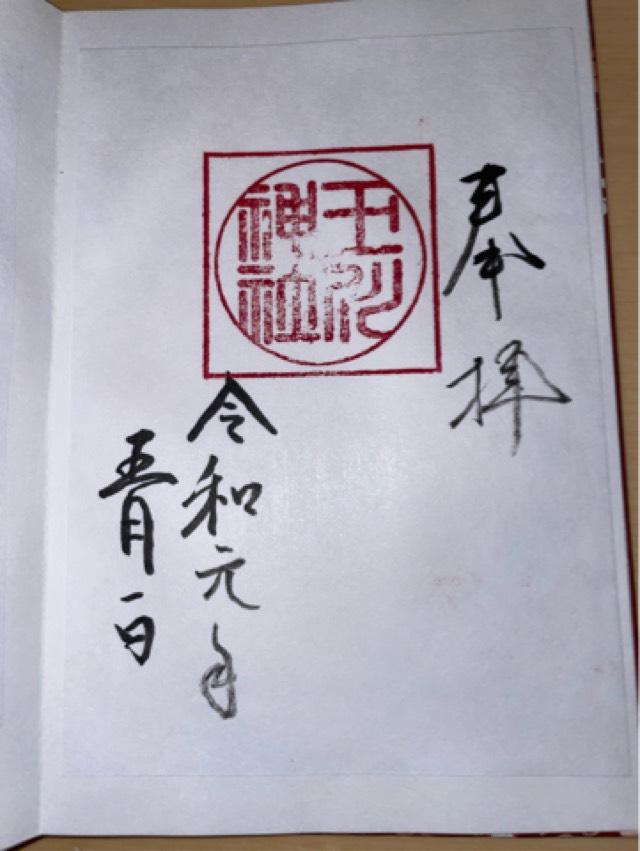 奉拝
玉川
神社
令和元年
五月一日